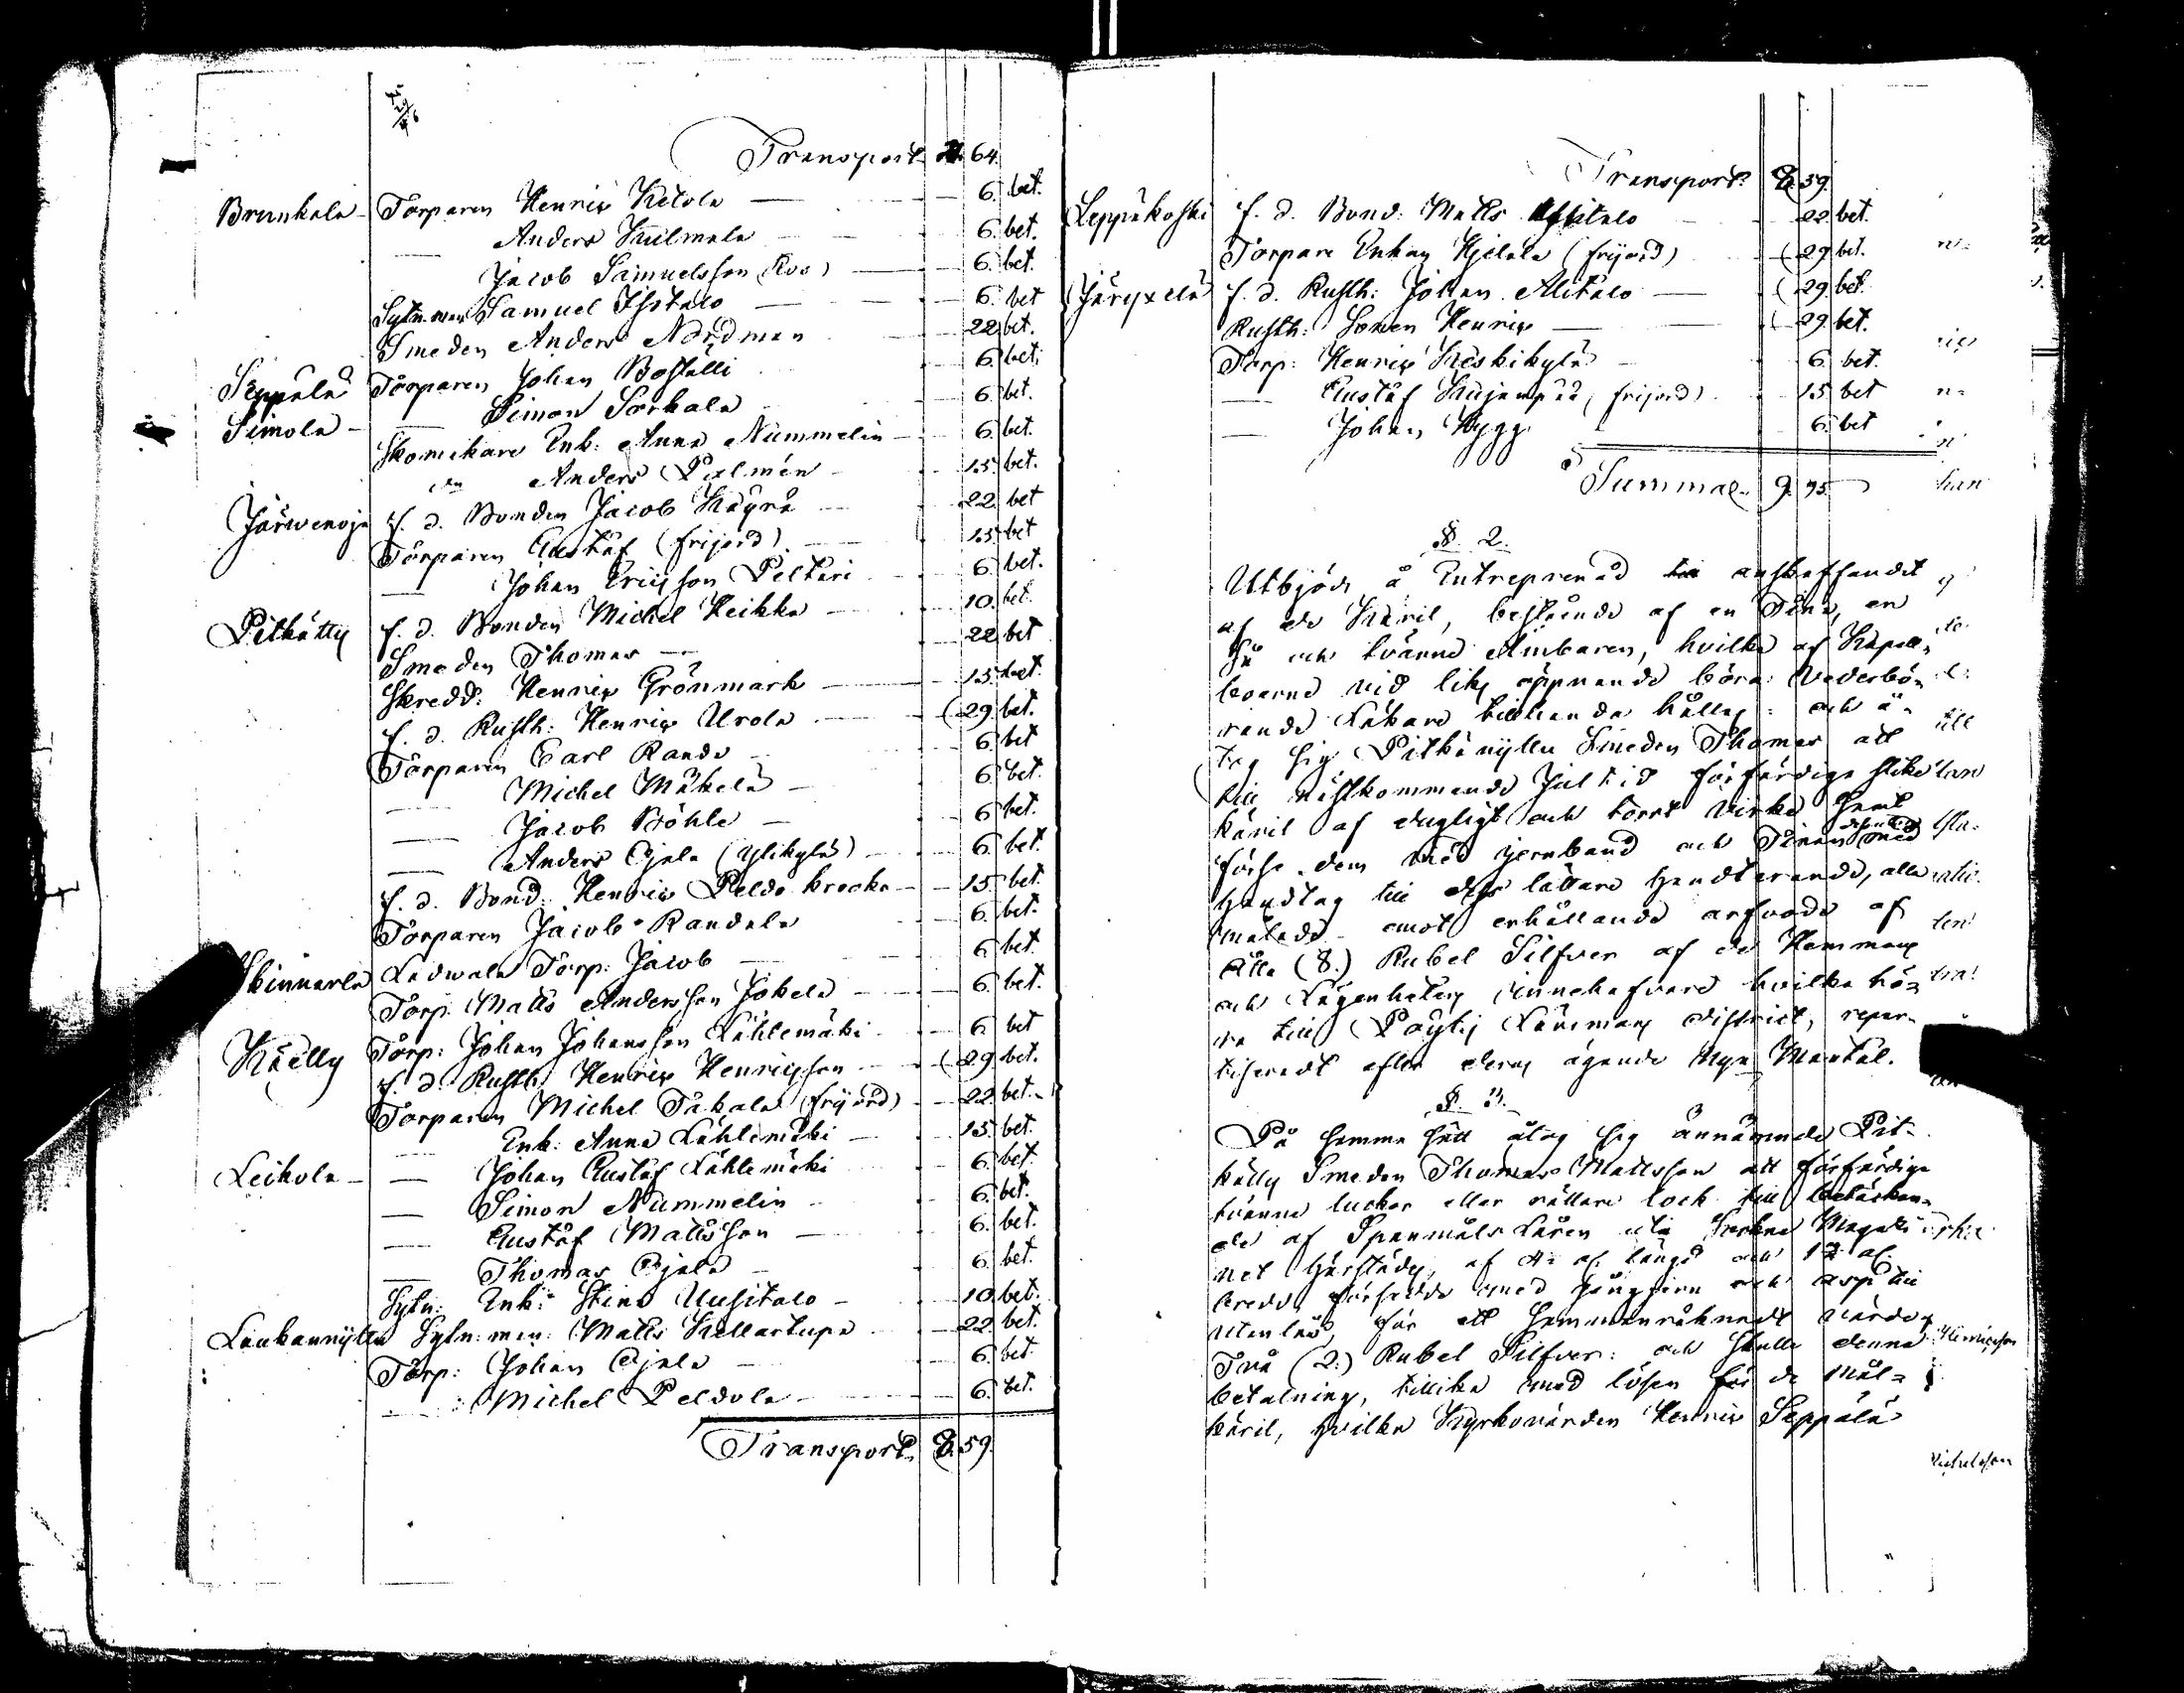 Transport 64.
Brunkala - Torparen Henric Ketola - 6. bet.
Anders Kulmala - 6. bet.
Jacob Samuelsson - 6. bet.
Sytn. man Samuel Isotalo - 6. bet
Smeden Anders Nordman 22. bet.
Seppälä Torparen Johan Boställi 6. bet.
Simola - Simon Sorkala 6. bet.
Skomakare Enk. Anna Nummelin - 6. bet.
Anders Palmén - 15. bet.
Järwenoja f. d. Bonden Jacob Käyrä 22. bet
Torparen Gustaf (frijord) 15. bet
Johan Ericsson Peltari 6. bet.
Pitkätty f. d. Bonden Michel Heikka - 10. bet.
Smeden Thomas - 22. bet
Skredd: Henric Grönmark - 15. bet.
f. d. Rusth: Henric Urola - 29. bet.
Torparen Carl Rande 6. bet
Michel Mäkelä - 6. bet.
Jacob Böhle - 6. bet.
Anders Ojala (Ylikylä) - 6. bet.
f. d. Bond: Henric Peldo 15. bet.
Torparen Jacob Randala 6. bet.
Skinnarla Ladwala Torp: Jacob - 6. bet.
Torp. Matts Andersson Jokela 6. bet.
Käelly Torp: Johan Johansson Lähtemäki 6. bet
f. d. Rusth: Henric Henricsson - 29. bet.
Torparen Michel Takala (frijord) - 22. bet.
Enk: Anna Lähtemäki 15. bet.
Leikola - Johan Gustaf Lähtemäki 6. bet.
Simon Nummelin 6. bet.
Gustaf Mattsson 6. bet.
Thomas Ojala 6. bet.
Sytn: Enk: Stina Uusitalo - 10. bet.
Laukannyttu Sytn: man: Matts Kellartupa 22. bet.
Torp: Johan Ojala - 6. bet.
Michel Peldola - 6. bet.
Transport 8. 59.
Transport 8. 59.
Leppäkoski f. d. Bond: Matts 22 bet.
Torpare Enkan Hjelala (frijord) 29 bet.
f. d. Rusth: Johan Alitalo - 29 bet.
Rusth: Sonen Henric - 29 bet.
Torp: Henric Keskikylä 6 bet.
Gustaf Kujanpää (frijord) 15 bet
Johan Hygg 6. bet
Summa 9. 95.
§. 2.
Utbjöds å Entreprenad anskaffandet
af de Käril, bestående af en Tina, en
Så och tvänne Ämbaren, hvilka af Kapell-
boerne vid liks öppnande böra Vederbö-
rande Läkare tillhanda hållas: och å-
tog sig Pitkänyttu Smeden Thomas att
till nästkommande Jul tid förfärdiga slika
käril af dugligt och torrt virke samt
förse dem med jernband och Tinan med
handtag till dess lättare handterande, alla
målade - emot erhållande arfvode af
Åtta (8.) Rubel Silfver af de Hemmans
och Lägenheters innehafvare hvilka hö-
ra till Pöytis Länsmans district, repar-
tiseradt efter deras ägande Nya Mantal.
§. 3.
På samma sätt åtog sig ännämnde Pit-
kätty Smeden Thomas Mattsson att förfärdiga
tvänne luckor eller rättare lock till betäckan-
de af Spanmåls Låren uti Sockne Magazi-
net härstädes, af 4 al. längd och 1 1/2 al.
bredd försedde med gångjern och asp till
utanlås, för ett sammanräknadt värde
Två (2.) Rubel Silfver: och skulle denna
betalning, tillika med lösen för de mål-
käril, hvilka Kyrkovärden Henric Seppälä